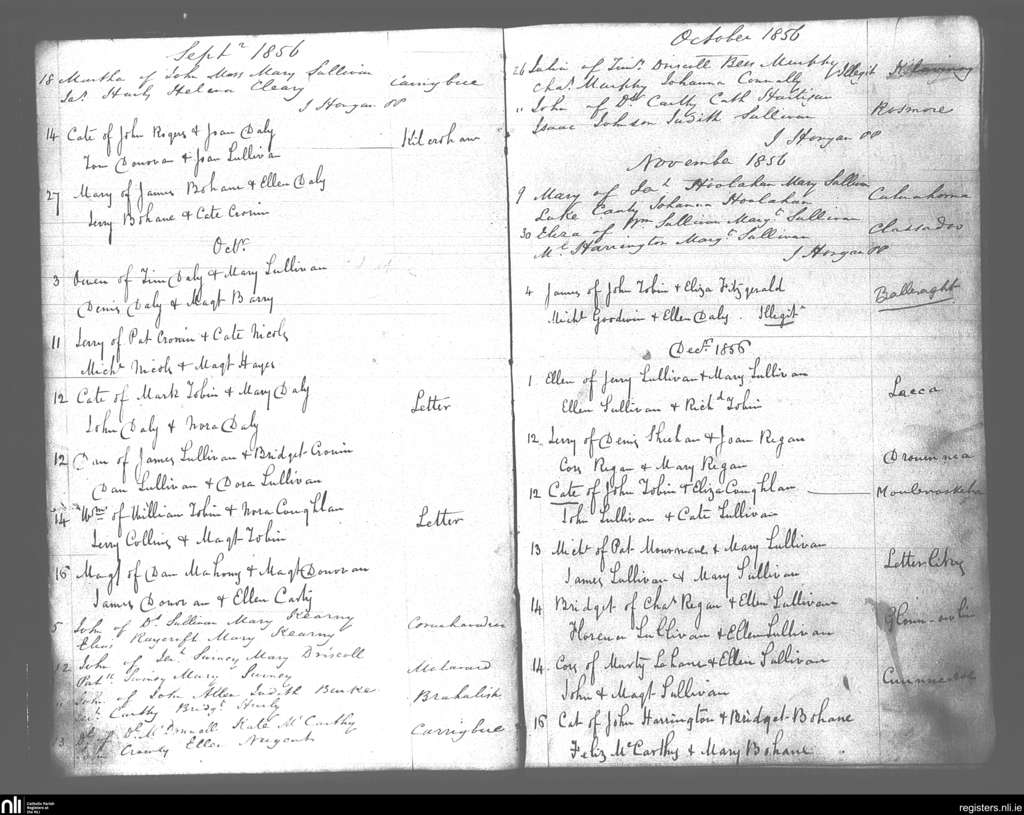 Septr 1856
18 Martha of John Moss Mary Sullivan Carrigbue
Jas. Hurly Helena Cleary
J Horgan PP
14 Cate of John Rogers & Joan Daly Kilcrohane
Tom Donovan & Joan Sullivan
27 Mary of James Bohane & Ellen Daly
Jerry Bohane & Cate Cronin
Octr.
3 Owen of Tim Daly & Mary Sullivan
Denis Daly & Magt Barry
11 Jerry of Pat Cronin & Cate Nicols
Michl Nicols & Magt Hayes
12 Cate of Mark Tobin & Mary Daly Letter
John Daly & Nora Daly
12 Dan of James Sullivan & Bridget Cronin
Dan Sullivan & Dora Sullivan
14 Wm of William Tobin & Nora Coughlan Letter
Jerry Collins & Magt Tobin
15 Magt of Dan Mahony & Magt Donovan
James Donovan & Ellen Carty
5 John of Dl Sullivan Mary Kearny
Raycroft Mary Kearny
12 John of Jer. Mary Driscoll
Patk Mary
John of John Allen Judith Burke Brahalish
Carthy Bridgt Hurly
of Dl McDonnell Kate McCarthy Carrigbue
Crowly Ellen Nugent
October 1856
26 Julia of Timy Driscoll Bess Murphy Illegit
Chas. Murphy Johanna Connolly
" John of Dl Carthy Cath Hartigan Rosmore
Isaac Johnson Judith Sullivan
J Horgan PP
November 1856
9 Mary of Jerh Hoolahan Mary Sullivan
Luke Canty Johanna Hoolahan
30 Eliza of Wm Sullivan Margt Sullivan Classadoo
Ml Harrington Margt Sullivan
J Horgan PP
4 James of John Tobin & Eliza Fitzgerald
Michl Goodwin & Ellen Daly. Illegite
Decr. 1856
1 Ellen of Jerry Sullivan & Mary Sullivan Lacca
Ellen Sullivan & Richd Tobin
12 Jerry of Denis Sheehan & Joan Regan
Cors Regan & Mary Regan
12 Cate of John Tobin & Eliza Coughlan
John Sullivan & Cate Sullivan
13 Michl of Pat Mournane & Mary Sullivan
James Sullivan & Mary Sullivan
14 Bridget of Chas Regan & Ellen Sullivan
Florence Sullivan & Ellen Sullivan
14. Cors of Murty Lehane & Ellen Sullivan
John & Magt Sullivan
15 Cat of John Harrington & Bridget Bohane
Felix McCarthy & Mary Bohane
nli Catholic Parish Registers at the NLI
registers.nli.ie